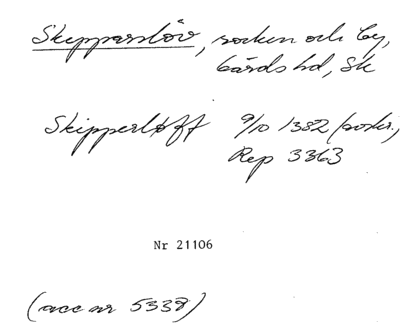 Skepparslöv, socken och by,
Gärds hd, Sk
Skipperløff 9/10 1382 (sockn.)
Rep 3363
Nr 21106
(acc nr 5338)